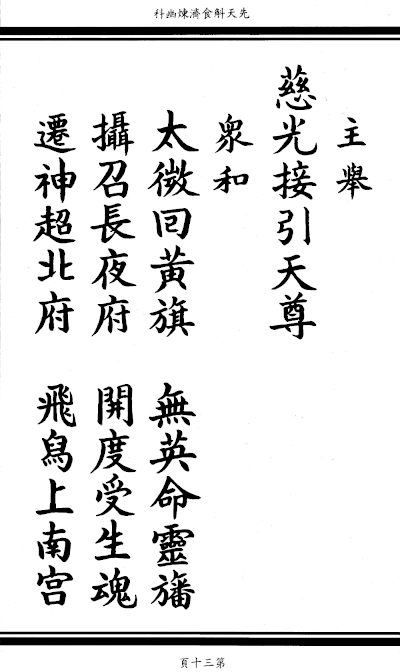 先天斛食濟煉幽科
主舉
慈光接引天尊
眾和
太微回黃旗　無英命靈旛
攝召長夜府　開度受生魂
遷神超北府　飛舄上南宮
第三十頁